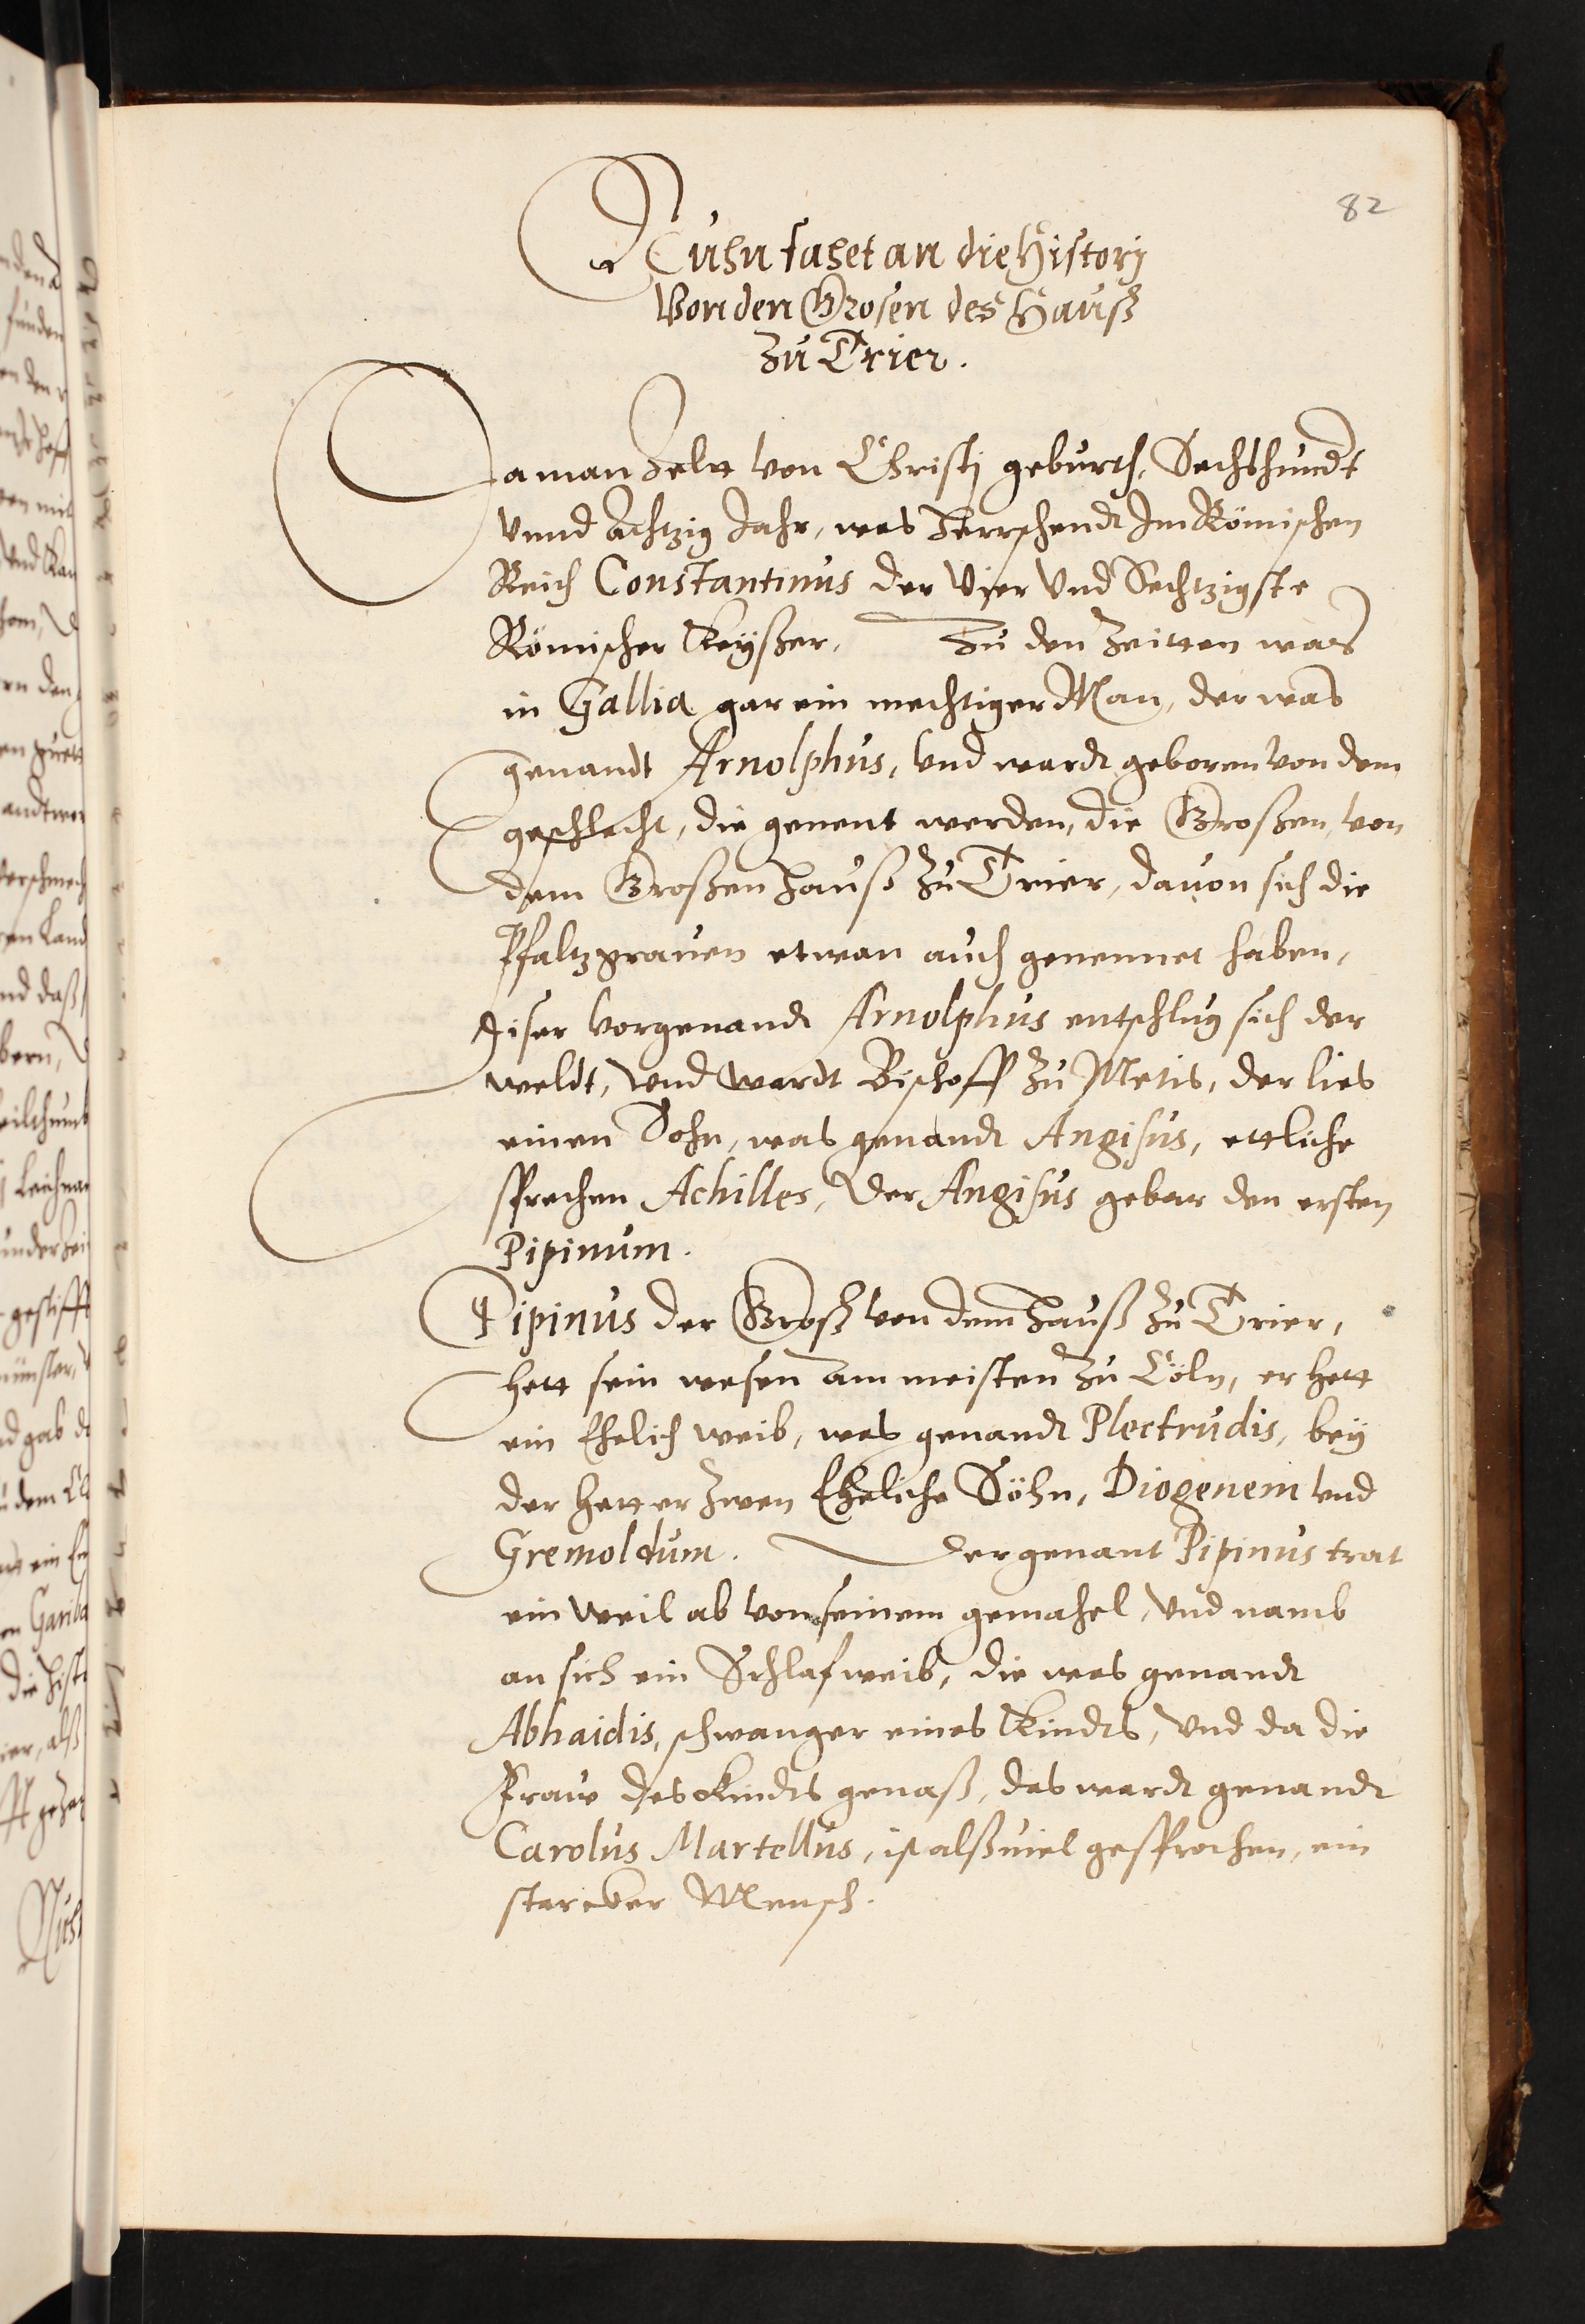 82
Nuhn fahet an die Historj
Von den Grosen des Hauß
zu Trier.
Da man Zeltt von Christj geburth, Sechshundt
vnnd Achtzig Jahr, was Herrschendt Im Römischen
Reich Constantinus der Vier Vnd Sechtzigste
Römischer Keyßer. Zu den Zeitten was
in Gallia gar ein mechtiger Man, der was
genandt Arnolphus, vnd wardt geboren von dem
geschlecht, die genent werden, die Großen, von
dem Großen Hauß Zu Trier, dauon sich die
Pfaltzgrauen etwan auch genennet haben,
Diser vorgenandt Arnolphus entschlug sich der
weldt, vnd wardt Bischoff Zu Metis, der lies
einen Sohn, was genandt Angisus, ettliche
sprechen Achilles, Der Angisus gebar den ersten
Pipinum.
Pipinus der Groß von dem Hauß Zu Trier,
hett sein wesen am meisten Zu Cöln, er hett
ein Ehelich weib, was genandt Plectrudis, bey
der hett er Zwen Eheliche Söhn, Diogenem vnd
Gremoldum. Der genant Pipinus trat
ein weil ab von seinem gemahel, vnd namb
an sich ein Schlafweib, die was genandt
Abhaidis, schwanger eines Kindts, vnd da die
Fraw des Kindts genaß, das wardt genandt
Carolus Martellus, ist alßuiel gesprochen, ein
starcker Mensch.